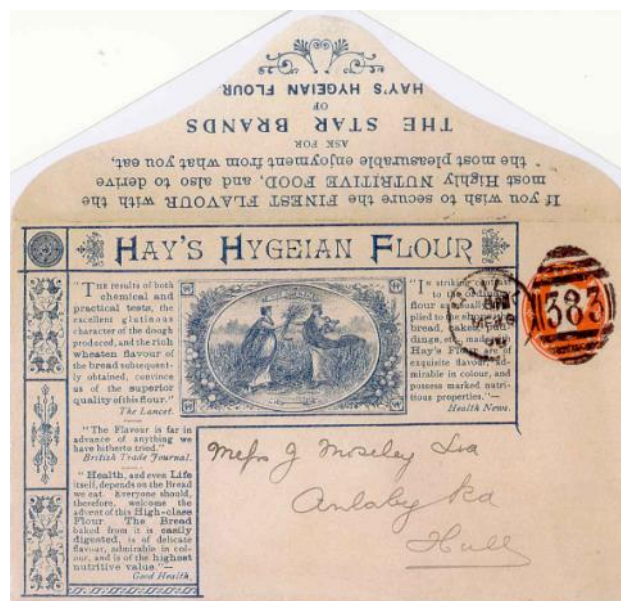 If you wish to secure the FINEST FLAVOUR with the
most Highly NUTRITIVE FOOD, and also to derive
the most pleasurable enjoyment from what you eat,
ASK FOR
THE STAR BRANDS
OF
HAY'S HYGEIAN FLOUR
HAY'S HYGEIAN FLOUR
"THE results of both
chemical and
practical tests, the
excellent glutinous
character of the dough
produced, and the rich
wheaten flavour of
the bread subsequent-
ly obtained, convince
us of the superior
quality of this flour."
The Lancet.
"The Flavour is far in
advance of anything we
have hitherto tried."
British Trade Journal.
"Health, and even Life
itself, depends on the Bread
we eat. Everyone should,
therefore, welcome the
advent of this High-class
Flour. The Bread
baked from it is easily
digested, is of delicate
flavour, admirable in col-
our, and is of the highest
nutritive value."—
Good Health.
"IN striking contrast
to the ordinary
flour as usually sup-
plied to the shops is
bread, cakes, pud-
dings, etc., made with
Hay's Flour are of
exquisite flavour, ad-
mirable in colour, and
possess marked nutri-
tious properties."—
Health News.
383
Messrs J Moseley
Anlaby Rd
Hull